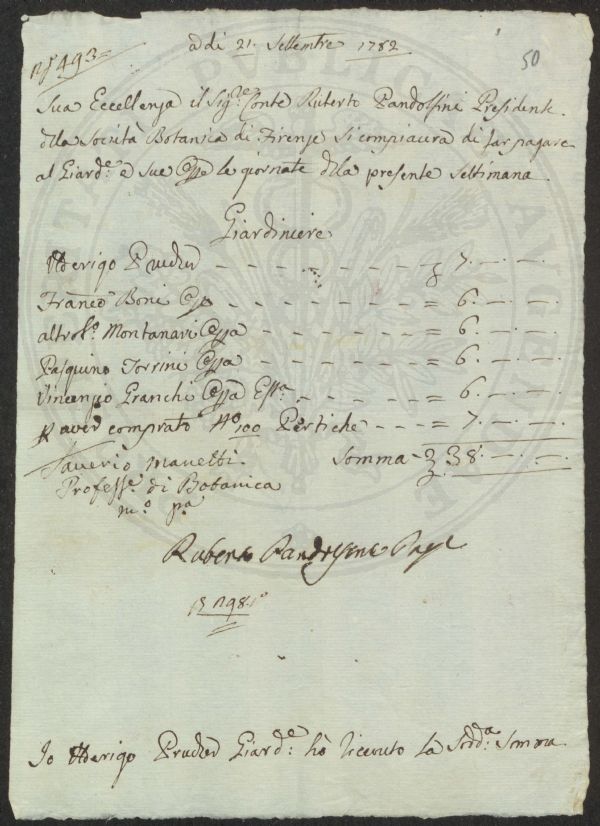 adi 21. Settembre 1782
50
nº 493
Sua Eccellenza il Sigre. Conte Ruberto Pandolfini Presidente
della Società Botanica di Firenze si compiacerà di far pagare
al Giarde. e sue Opre le giornate della presente Settimana
Giardiniere
Odorigo Prucker - - - - - - - - 7. - . -
Franco Boni Opa - - - - - - - - = 6. - . -
altro Montanari Opra - - - - - - = 6. - . -
Pasquino Torrini Opra - - - - - - = 6. - . -
Vincenzio Granchi Opra - - - - = 6. - . -
aver comprato No. 100 Pertiche - - - = 7. - . -
Saverio Manetti Somma - 38. - . -
Professe. di Botanica
mo. pa.
Ruberto Pandolfini
1798
Io Odorigo Prucker Giarde: hò ricevuto la Sudda: Somma